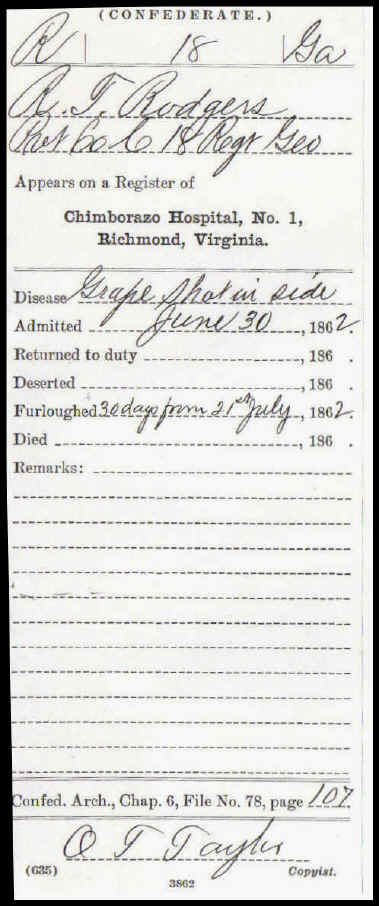 (CONFEDERATE.)
R | 18 | Ga
R. T. Rodgers
Pvt Co C 18 Regt Geo
Appears on a Register of
Chimborazo Hospital, No. 1,
Richmond, Virginia.
Disease Grape shot in side
Admitted June 30, 1862.
Returned to duty , 186 .
Deserted , 186 .
Furloughed 30 days from 21st July, 1862.
Died , 186 .
Remarks:
Confed. Arch., Chap. 6, File No. 78, page 107
O T Taylor
(635) Copyist.
3862